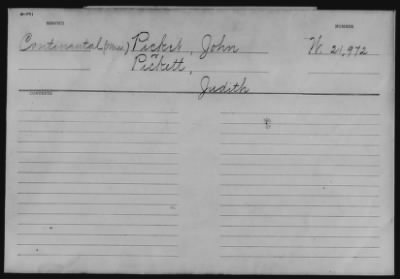 SERVICE
NUMBER
Continental (Mass.) Pickett, John W. 21,972
Pickett,
Judith
CONTENTS